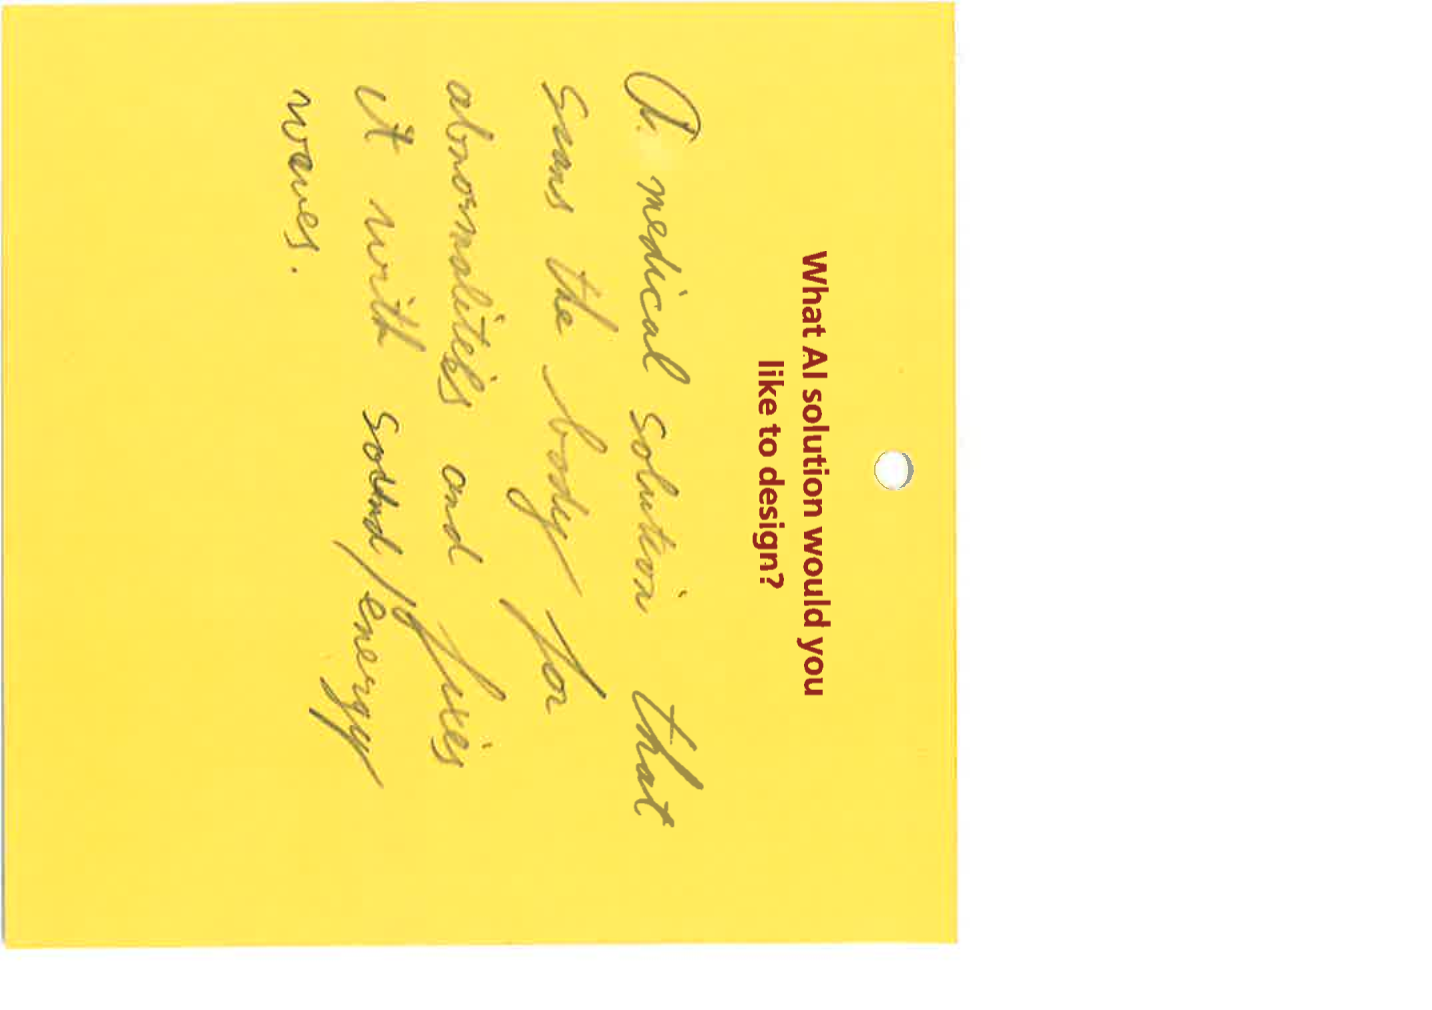 What AI solution would you
like to design?
A medical solution that
scans the body for
abnormalities and fixes
it with sound/energy
waves.